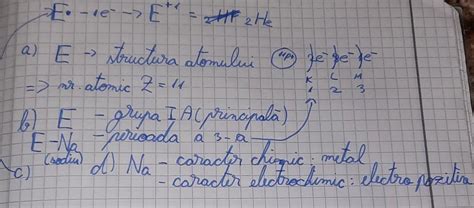 E• - 1e⁻ → E⁺¹ = ₂He
a) E → structura atomului (11p⁺) )e⁻ )e⁻ )e⁻
K L M
=> nr. atomic Z = 11 1 2 3
b) E - grupa I A (principală)
E - Na - perioada a 3-a
(sodiu)
c) d) Na - caracter chimic: metal
- caracter electrochimic: electropozitiv